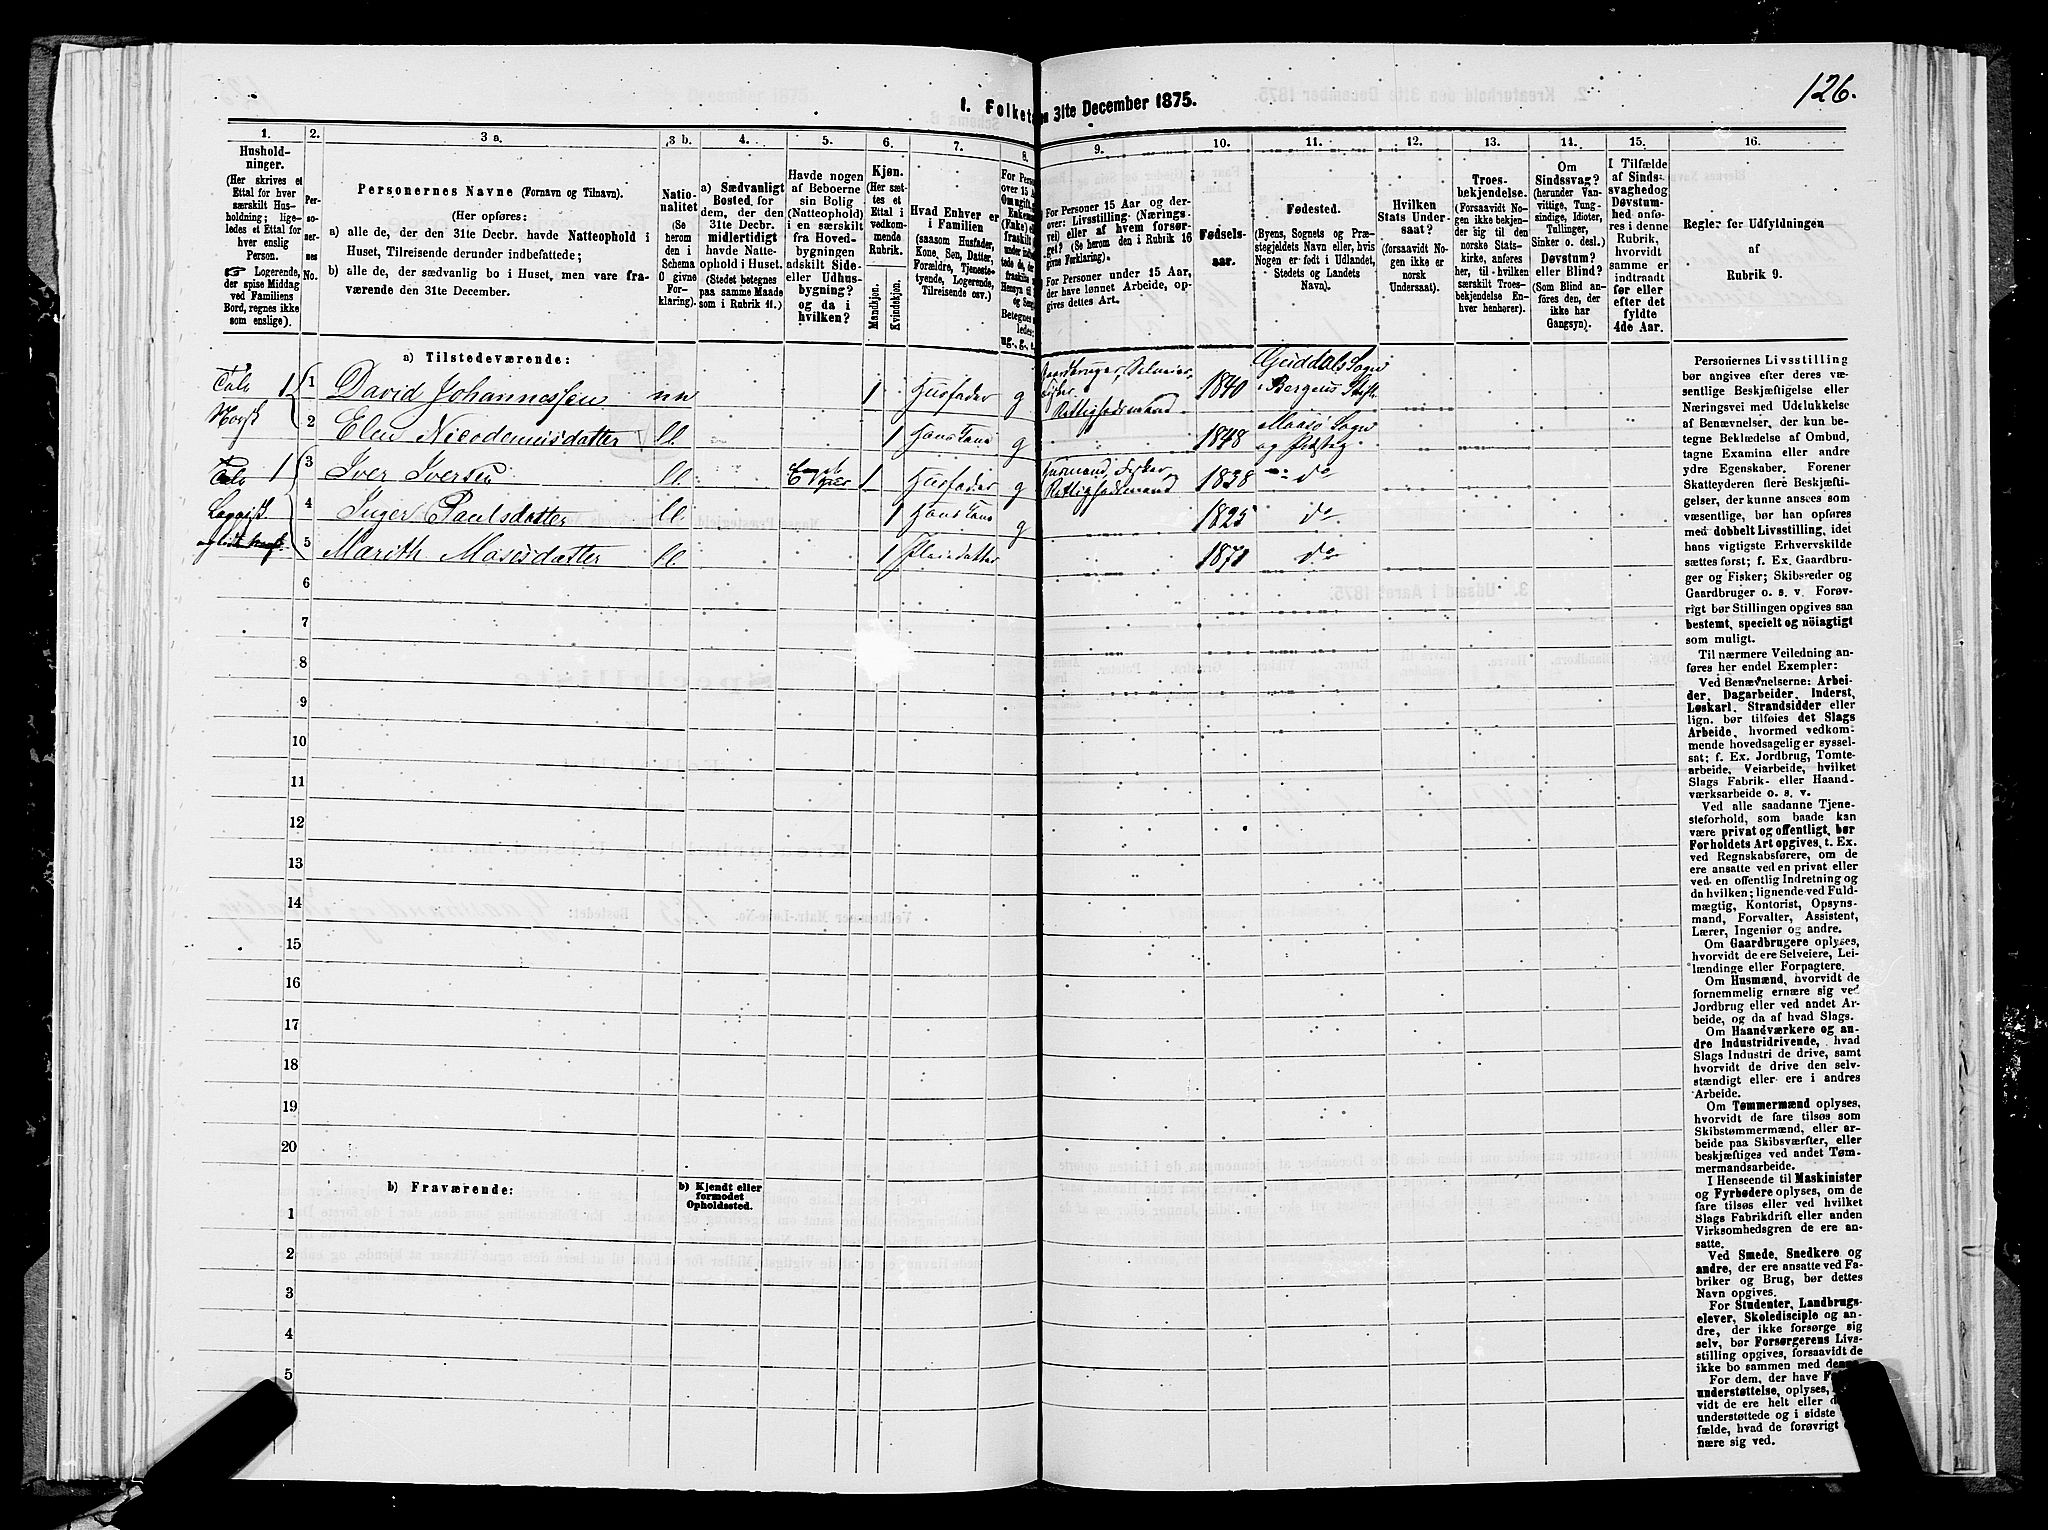 126.
1. Folket en 31te December 1875.
1. 2. 3 a. 3 b. 4. 5. 6. 7. 8. 9. 10. 11. 12. 13. 14. 15. 16.
Hushold-
ninger.
(Her skrives et
Ettal for hver
særskilt Hus-
holdning; lige-
ledes et Ettal for
hver enslig
Person.
☞ Logerende,
der spise Middag
ved Familiens
Bord, regnes ikke
som enslige).
Per-
so-
ner-
nes
No.
Personernes Navne (Fornavn og Tilnavn).
(Her opføres:
a) alle de, der den 31te Decbr. havde Natteophold i
Huset, Tilreisende derunder indbefattede;
b) alle de, der sædvanlig bo i Huset, men vare fra-
værende den 31te December.
Natio-
nalitet
(Se
herom
den i
Schema
O givne
For-
klaring).
a) Sædvanligt
Bosted, for
dem, der den
31te Decbr.
midlertidigt
havde Natte-
ophold i Huset.
(Stedet betegnes
paa samme Maade
som i Rubrik 11.)
Havde nogen
af Beboerne
sin Bolig
(Natteophold)
i en særskilt
fra Hoved-
bygningen
adskilt Side-
eller Udhus-
bygning?
og da i
hvilken?
Kjøn.
(Her sæt-
tes et
Ettal i
vedkom-
mende
Rubrik.
Mandkjøn.
Kvindekjøn.
Hvad Enhver er
i Familien
(saasom Husfader,
Kone, Søn, Datter,
Forældre, Tjeneste-
tyende, Logerende,
Tilreisende osv.)
For Personer 15 Aar og der-
over: Livsstilling (Nærings-
vei) eller af hvem forsør-
get? (Se herom den i Rubrik 16
givne Forklaring).
For Personer under 15 Aar,
der have lønnet Arbeide, op-
gives dettes Art.
Fødsels-
aar.
Fødested.
(Byens, Sognets og Præ-
stegjeldets Navn eller, hvis
Nogen er født i Udlandet,
Stedets og Landets
Navn).
Hvilken
Stats Under-
saat?
(forsaavidt No-
gen ikke er
norsk
Undersaat).
Troes-
bekjendelse.
(Forsaavidt No-
gen ikke bekjen-
der sig til den
norske Stats-
kirke, anføres
her, til hvilken
særskilt Troes-
bekjendelse En-
hver henhører).
Om
Sindssvag?
(herunder Van-
vittige, Tung-
sindige, Idioter,
Tullinger,
Sinker o. desl.)
Døvstum?
eller Blind?
(Som Blind an-
føres den, der
ikke har
Gangsyn).
I Tilfælde
af Sinds-
svaghedog
Døvstum-
hed anfø-
res i denne
Rubrik,
hvorvidt
samme er
indtraadt
før eller
efter det
fyldte
4de Aar.
Regler for Udfyldningen
af
Rubrik 9.
a) Tilstedeværende:
Tale 1 1 David Johannessen nn 1 Husfader g Gaardbruger, Selveier, Fisker Rettighedsmand 1840 Guddals Sogn i Bergens Stift
Norsk 2 Elen Nicodemusdatter ll 1 Hans Kone g 1848 Maasø Sogn og Prstgj
Tale 1 3 Iver Iversen ll 1 Husfader g Rettighedsmand 1838 do
4 Inger Paulsdatter ll 1 Hans Kone g 1825 do
5 Marith Mosisdatter ll 1 Pleiedatter 1871 do
6
7
8
9
10
11
12
13
14
15
16
17
18
19
20
b) Fraværende:
b) Kjendt eller
formodet
Opholdssted.
1
2
3
4
5
Personernes Livsstilling
bør angives efter deres væ-
sentlige Beskjæftigelse eller
Næringsvei med Udelukkelse
af Benævnelser, der kun be-
tegne Beklædelse af Ombud,
tagne Examina eller andre
ydre Egenskaber. Forener
Skatteyderen flere Beskjæfti-
gelser, der kunne ansees som
væsentlige, bør han opføres
med dobbelt Livsstilling, idet
hans vigtigste Erhvervskilde
sættes først; f. Ex. Gaardbru-
ger og Fisker; Skibsreder og
Gaardbruger o. s. v. Forøv-
rigt bør Stillingen opgives saa
bestemt, specielt og nöiagtigt
som muligt.
Til nærmere Veiledning an-
føres her endel Exempler:
Ved Benævnelserne: Arbei-
der, Dagarbeider, Inderst,
Løskarl, Strandsidder eller
lign. bør tilføies det Slags
Arbeide, hvormed vedkom-
mende hovedsagelig er syssel-
sat; f. Ex. Jordbrug, Tomte-
arbeide, Veiarbeide, hvilket
Slags Fabrik- eller Haand-
værksarbeide o. s. v.
Ved alle saadanne Tjene-
steforhold, som baade kan
være privat og offentligt, bør
Forholdets Art opgives, t. Ex.
ved Regnskabsførere, om de
ere ansatte ved en privat eller
ved en offentlig Indretning og
da hvilken; lignende ved Fuld-
mægtig, Kontorist, Opsyns-
mand, Forvalter, Assistent,
Lærer, Ingeniør og andre.
Om Gaardbrugere oplyses,
hvorvidt de ere Selveiere, Lei-
lændinge eller Forpagtere.
Om Husmænd, hvorvidt de
fornemmelig ernære sig ved
Jordbrug eller ved andet Ar-
beide, og da af hvad Slags.
Om Haandværkere og an-
dre Industridrivende, hvad
Slags Industri de drive, samt
hvorvidt de drive den selv-
stændigt eller ere i andres
Arbeide.
Om Tømmermænd oplyses,
hvorvidt de fare tilsøs som
Skibstømmermænd, eller ar-
beide paa Skibsværfter, eller
beskjæftiges ved andet Tøm-
mermandsarbeide.
I Henseende til Maskinister
og Fyrbødere oplyses, om de
fare tilsøs eller ved hvilket
Slags Fabrikdrift eller anden
Virksomhedsgren de ere an-
satte.
Ved Smede, Snedkere og
andre, der ere ansatte ved Fa-
briker og Brug, bør dettes
Navn opgives.
For Studenter, Landbrugs-
elever, Skoledisciple og an-
dre, der ikke forsørge sig
selv, bør Forsørgerens Livs-
stilling opgives, forsaavidt de
ikke bo sammen med denne.
For dem, der have
understøttelse, oplyses,
vidt de ere helt eller
understøttede og i sidste
fælde, hvad de forøvrigt
nære sig ved.